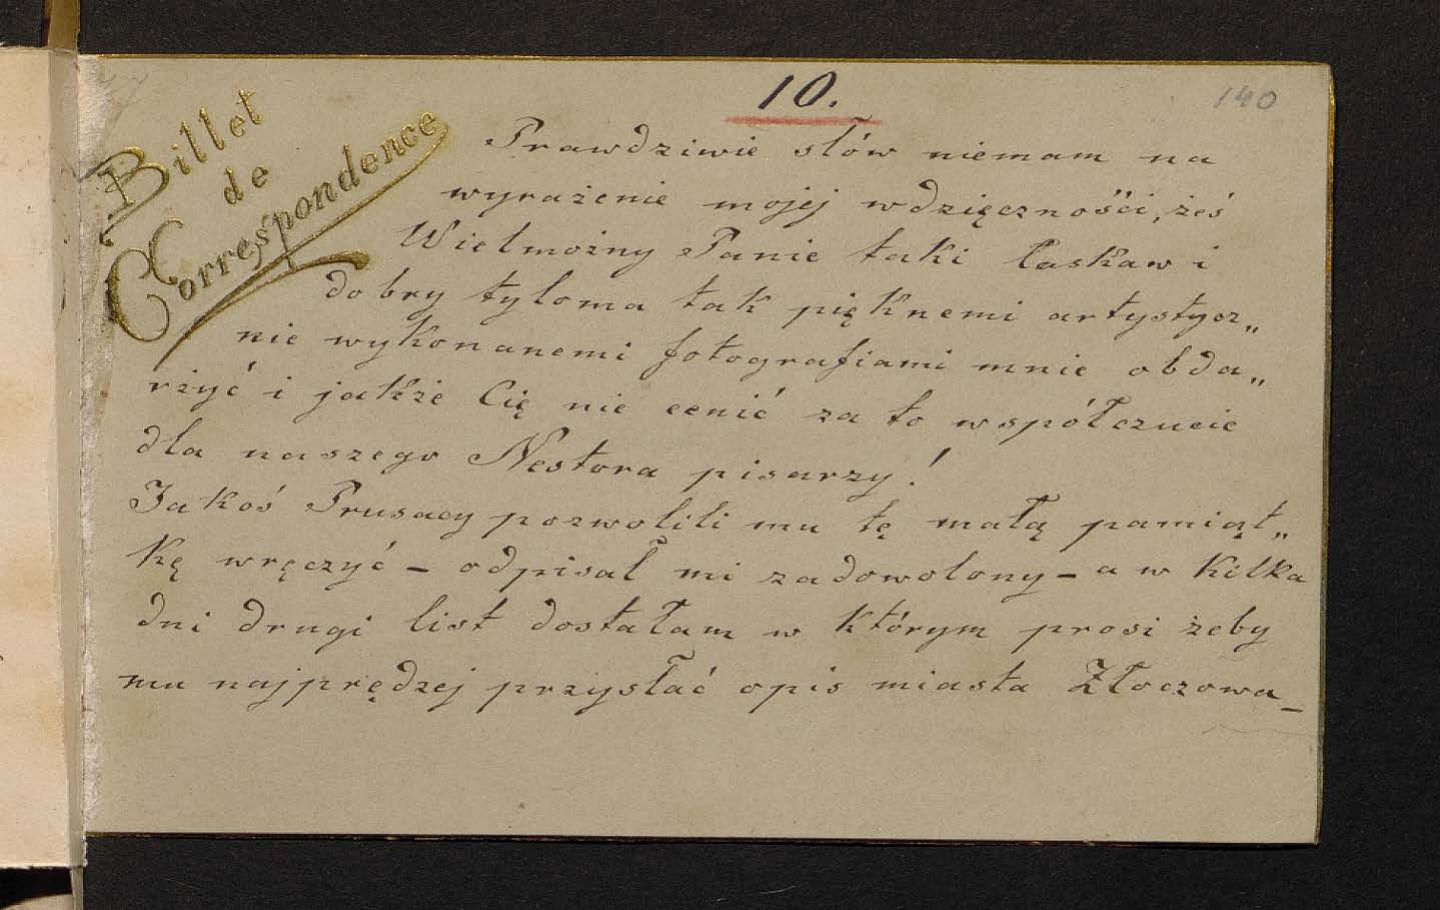 10.
140
Billet
de
Correspondence
Prawdziwie słów niemam na
wyrażenie mojej wdzięczności, żeś
Wielmożny Panie taki łaskaw i
dobry tyloma tak pięknemi artystycz„
nie wykonanemi fotografiami mnie obda„
rzyć i jakże Cię nie cenić za to współczucie
dla naszego Nestora pisarzy!
Jakoś Prusacy pozwolili mu tę małą pamiąt„
kę wręczyć – odpisał mi zadowolony – a w kilka
dni drugi list dostałam w którym prosi żeby
mu najprędzej przysłać opis miasta Złoczowa –